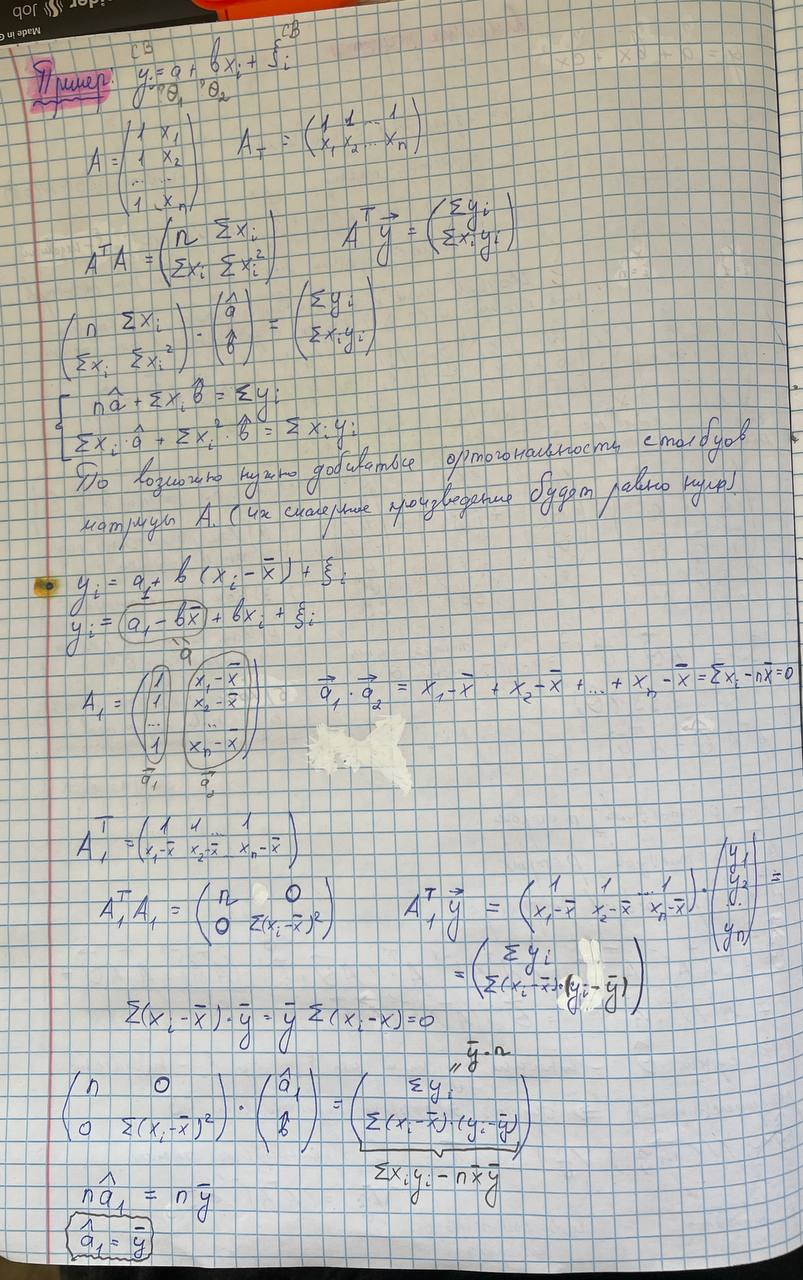 Made in G
sider
Job
СВ СВ
Пример: yᵢ = a + bxᵢ + ξᵢ
"θ₁ "θ₂
A = (1 x₁; 1 x₂; ... ...; 1 xₙ) A_T = (1 1 ... 1; x₁ x₂ ... xₙ)
AᵀA = (n Σxᵢ; Σxᵢ Σxᵢ²) Aᵀy⃗ = (Σyᵢ; Σxᵢyᵢ)
(n Σxᵢ; Σxᵢ Σxᵢ²) · (â; b̂) = (Σyᵢ; Σxᵢyᵢ)
{ nâ + Σxᵢ b̂ = Σyᵢ
Σxᵢ · â + Σxᵢ² · b̂ = Σxᵢyᵢ
По возможно нужно добиваться ортогональности столбцов
матрицы A. (их скалярное произведение будет равно нулю)
yᵢ = a₁ + b(xᵢ - x̄) + ξᵢ
yᵢ = a₁ - bx̄ + bxᵢ + ξᵢ
"a
A₁ = (1 x₁ - x̄; 1 x₂ - x̄; ... ..; 1 xₙ - x̄) a⃗₁ · a⃗₂ = x₁ - x̄ + x₂ - x̄ + ... + xₙ - x̄ = Σxᵢ - nx̄ = 0
a⃗₁ a⃗₂
A₁ᵀ = (1 1 ... 1; x₁-x̄ x₂-x̄ ... xₙ-x̄)
A₁ᵀA₁ = (n 0; 0 Σ(xᵢ-x̄)²) A₁ᵀy⃗ = (1 1 ... 1; x₁-x̄ x₂-x̄ xₙ-x̄) · (y₁; y₂; .; yₙ) =
= (Σyᵢ; Σ(xᵢ-x̄)·(yᵢ-ȳ))
Σ(xᵢ-x̄)·ȳ = ȳ Σ(xᵢ-x) = 0
"ȳ·n
(n 0; 0 Σ(xᵢ-x̄)²) · (â₁; b̂) = (Σyᵢ; Σ(xᵢ-x̄)·(yᵢ-ȳ))
Σxᵢyᵢ - nx̄ȳ
nâ₁ = nȳ
â₁ = ȳ